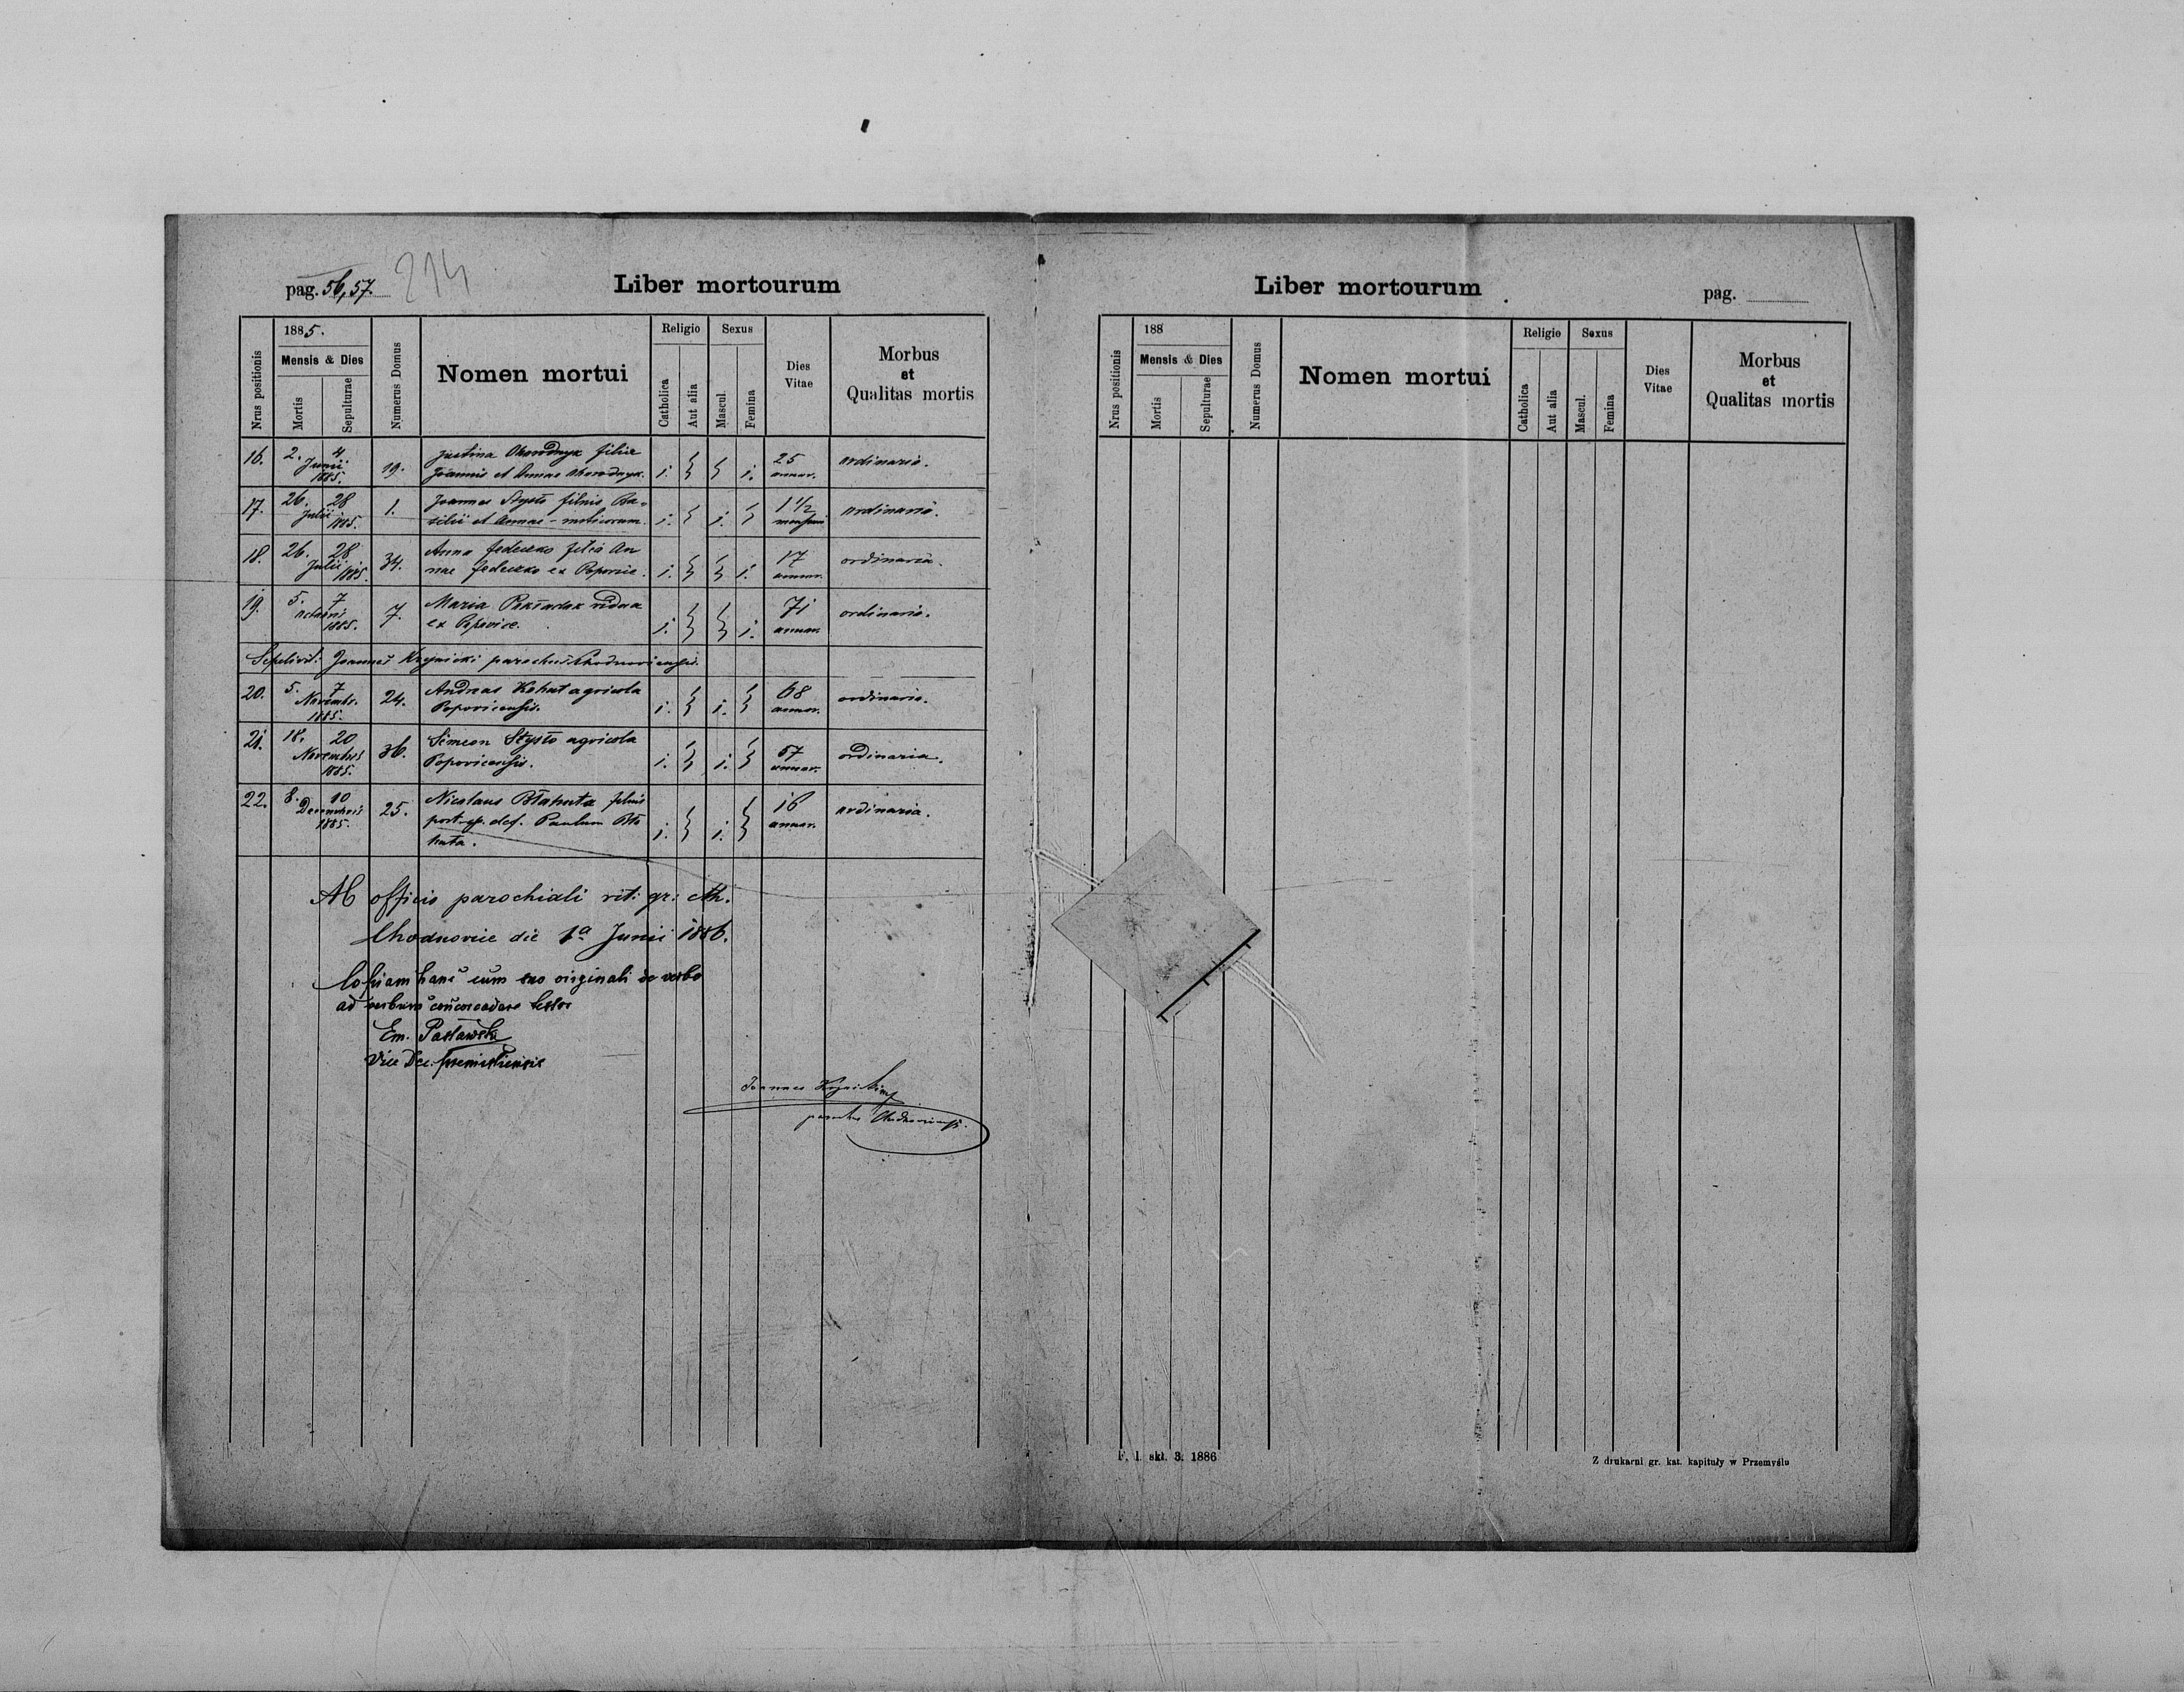 pag. 56, 57. 214
Liber mortourum
Nrus positionis
1885.
Mensis & Dies
Mortis
Sepulturae
Numerus Domus
Nomen mortui
Religio
Catholica
Aut alia
Sexus
Mascul.
Femina
Dies
Vitae
Morbus
et
Qualitas mortis
16. 2. 4 Junii 1885. 19. Justina filia
Joannis et Annae 1. 1. 25 annor. ordinaria.
17. 26. 28 Julii 1885. 1. Joannes Stysło filius Ba-
silii et Annae 1. 1. 1 1/2 ordinaria.
18. 26. 28 Julii 1885. 34. Anna Fedeczko filia An
nae Fedeczko ex Popowice. 1. 1. 17 annor. ordinaria.
19. 5. 7 1885. 7. Maria vidua
ex Popovice. 1. 1. 71 annor. ordinaria.
Sepelivit: Joannes Krynicki parochus Chodnovicensis.
20. 5. 7 Novembr. 1885. 24. Andreas Kohut agricola
Popovicensis. 1. 1. 68 annor. ordinaria.
21. 18. 20 Novembris 1885. 36. Simeon Stysło agricola
Popovicensis. 1. 1. 67 annor. ordinaria.
22. 8. 10 Decembris 1885. 25. Nicolaus Błahuta filius
post def. Paulum Bła
huta. 1. 1. 16 annor. ordinaria.
Ab officio parochiali rit: gr: cth.
Chodnovice die 1a Junii 1886.
Copiam hanc cum suo originali de verbo
ad verbum concordare testor
Em. Pasławski
Vice Dec. Premisliensis
Joannes Krynicki
parochus Chodnovicensis.
Liber mortourum
pag.
Nrus positionis
188
Mensis & Dies
Mortis
Sepulturae
Numerus Domus
Nomen mortui
Religio
Catholica
Aut alia
Sexus
Mascul.
Femina
Dies
Vitae
Morbus
et
Qualitas mortis
F. 1. skł. 3. 1886
Z drukarni gr. kat. kapituły w Przemyślu